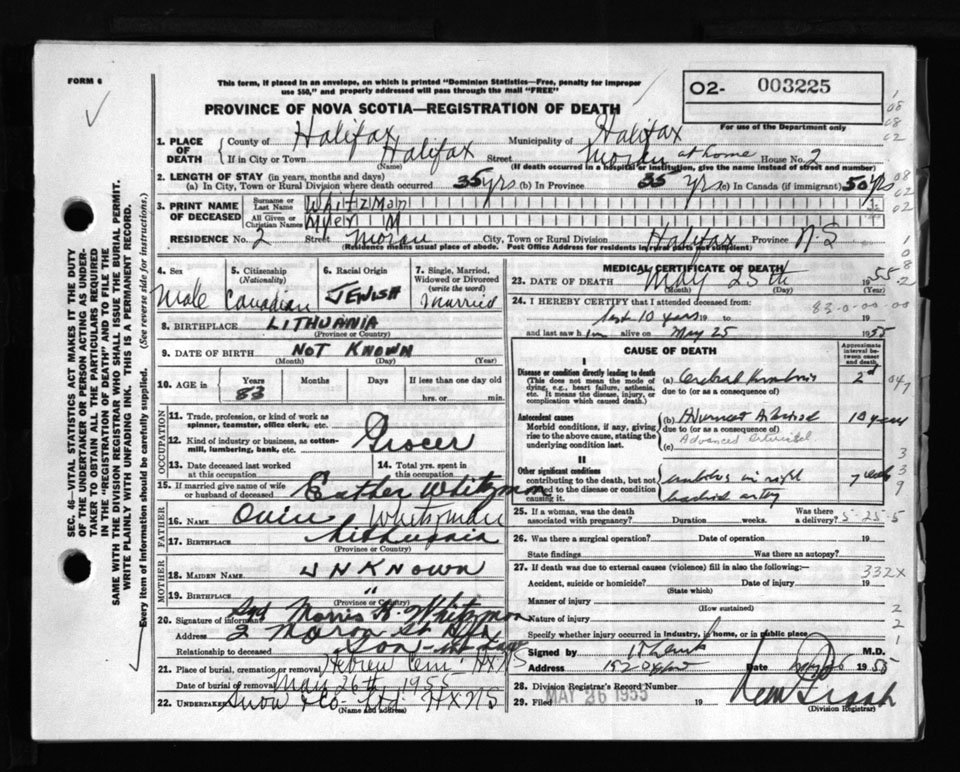 FORM 6
This form, if placed in an envelope, on which is printed "Dominion Statistics—Free, penalty for improper
use $50," and properly addressed will pass through the mail "FREE"
O2- 003225
For use of the Department only
PROVINCE OF NOVA SCOTIA—REGISTRATION OF DEATH
1. PLACE OF DEATH
County of Halifax Municipality of Halifax
If in City or Town Halifax Street Moran at home House No. 2
(Name) (If death occurred in a hospital or institution, give the name instead of street and number)
2. LENGTH OF STAY (in years, months and days)
(a) In City, Town or Rural Division where death occurred 35 yrs (b) In Province 35 yrs (c) In Canada (if immigrant) 50 yrs
3. PRINT NAME OF DECEASED
Surname or Last Name Whitzman
All Given or Christian Names Myer M
RESIDENCE No. 2 Street Moran City, Town or Rural Division Halifax Province N-S
(Residence means usual place of abode. Post Office Address for residents in rural parts not sufficient)
4. Sex Male
5. Citizenship (Nationality) Canadian
6. Racial Origin JEWISH
7. Single, Married, Widowed or Divorced (write the word) married
8. BIRTHPLACE LITHUANIA
(Province or Country)
9. DATE OF BIRTH NOT KNOWN
(Month) (Day) (Year)
10. AGE in Years Months Days If less than one day old
83 hrs. or min.
OCCUPATION
11. Trade, profession, or kind of work as spinner, teamster, office clerk, etc.
12. Kind of industry or business, as cotton-mill, lumbering, bank, etc. Grocer
13. Date deceased last worked at this occupation
14. Total yrs. spent in this occupation
15. If married give name of wife or husband of deceased Esther Whitzman
FATHER
16. NAME Whitzman
17. BIRTHPLACE Lithuania
(Province or Country)
MOTHER
18. MAIDEN NAME UNKNOWN
19. BIRTHPLACE "
(Province or Country)
20. Signature of informant Sgd Morris H. Whitzman
Address 2 Moran St Hfx
Relationship to deceased Son
21. Place of burial, cremation or removal Hebrew Cem. HX NS
Date of burial of removal May 26th 1955
22. UNDERTAKER Snow & Co. Ltd. HX NS
(Name and Address)
MEDICAL CERTIFICATE OF DEATH
23. DATE OF DEATH May 25th 1955
(Month) (Day) (Year)
24. I HEREBY CERTIFY that I attended deceased from 83-0-00-00
last 10 years 19 to 19
and last saw him alive on May 25 1955
CAUSE OF DEATH
Approximate interval between onset and death.
I
Disease or condition directly leading to death
(This does not mean the mode of dying, e.g., heart failure, asthenia, etc. It means the disease, injury, or complication which caused death.)
(a) Cerebral 2 d
due to (or as a consequence of)
Antecedent causes
Morbid conditions, if any, giving rise to the above cause, stating the underlying condition last.
(b) Advanced 10 years
due to (or as a consequence of)
(c) Advanced
II
Other significant conditions contributing to the death, but not related to the disease or condition causing it.
embolus in right artery 7 weeks
25. If a woman, was the death associated with pregnancy? Duration weeks. Was there a delivery? 5-25-5
26. Was there a surgical operation? Date of operation 19
State findings Was there an autopsy?
27. If death was due to external causes (violence) fill in also the following:— 332X
Accident, suicide or homicide? Date of injury 19
(State which)
Manner of injury
(How sustained)
Nature of injury
Specify whether injury occurred in industry, in home, or in public place
Signed by M.D.
Address 152 Oxford Date May 26 1955
28. Division Registrar's Record Number
29. Filed MAY 26 1955 19
(Division Registrar)
SEC. 46—VITAL STATISTICS ACT MAKES IT THE DUTY
OF THE UNDERTAKER OR PERSON ACTING AS UNDER-
TAKER TO OBTAIN ALL THE PARTICULARS REQUIRED
IN THE "REGISTRATION OF DEATH" AND TO FILE THE
SAME WITH THE DIVISION REGISTRAR WHO SHALL ISSUE THE BURIAL PERMIT.
WRITE PLAINLY WITH UNFADING INK. THIS IS A PERMANENT RECORD.
Every item of Information should be carefully supplied. (See reverse side for instructions.)